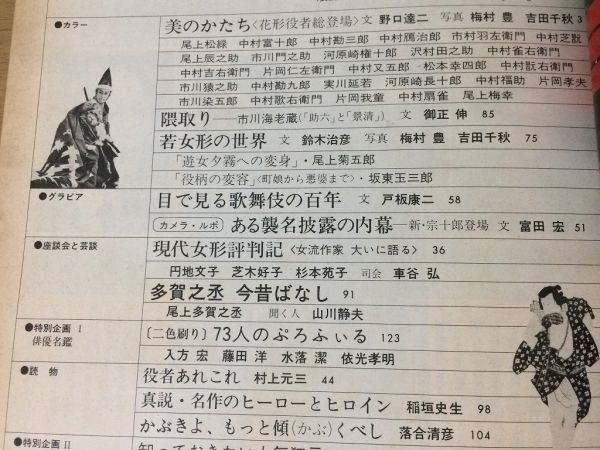 ●カラー
美のかたち〈花形役者総登場〉文 野口達二 写真 梅村 豊 吉田千秋 3
尾上松緑 中村富十郎 中村勘三郎 中村鴈治郎 市村羽左衛門 中村芝翫
尾上辰之助 市川門之助 河原崎権十郎 沢村田之助 中村雀右衛門
中村吉右衛門 片岡仁左衛門 中村又五郎 松本幸四郎 中村翫右衛門
市川猿之助 中村勘九郎 実川延若 河原崎長十郎 中村福助 片岡孝夫
市川染五郎 中村歌右衛門 片岡我童 中村扇雀 尾上梅幸
隈取り──市川海老蔵(「助六」と「景清」) 文 御正 伸 85
若女形の世界 文 鈴木治彦 写真 梅村 豊 吉田千秋 75
「遊女夕霧への変身」・尾上菊五郎
「役柄の変容」〈町娘から悪婆まで〉・坂東玉三郎
●グラビア
目で見る歌舞伎の百年 文 戸板康二 58
カメラ・ルポ ある襲名披露の内幕──新・宗十郎登場 文 富田 宏 51
●座談会と芸談
現代女形評判記〈女流作家 大いに語る〉 36
円地文子 芝木好子 杉本苑子 司会 車谷 弘
多賀之丞 今昔ばなし 91
尾上多賀之丞 聞く人 山川静夫
●特別企画 I
俳優名鑑
〔二色刷り〕73人のぷろふぃる 123
入方 宏 藤田 洋 水落 潔 依光孝明
●読 物
役者あれこれ 村上元三 44
真説・名作のヒーローとヒロイン 稲垣史生 98
かぶきよ、もっと傾(かぶ)くべし 落合清彦 104
●特別企画 II